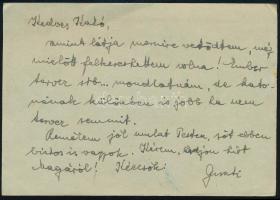 Kedves Kató,
amint látja messire vetődtem, még
mielőtt felkereshettem volna! Ember
tervez stb... mondhatnám, de kato-
nának különben is jobb ha nem
tervez semmit.
Remélem jól mulat Pesten, sőt ebben
biztos is vagyok. Kérem, adjon hírt
magáról! Kézcsók:
Guszti